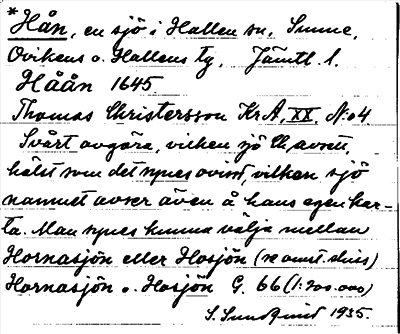 *Hån, en sjö i Hallen sn, Sunne,
Ovikens o. Hallens tg, Jämtl. l.
Håån 1645
Thomas Christersson KrA, XX, No 4
Svårt avgöra, vilken sjö Ch. avser,
hälst som det synes ovisst, vilken sjö
namnet avser även å hans egen kar-
ta. Man synes kunna välja mellan
Hornasjön eller Hosjön (se anst. skiss)
Hornasjön o. Hosjön G. 66 (1:200.000)
S. Sundquist 1935.